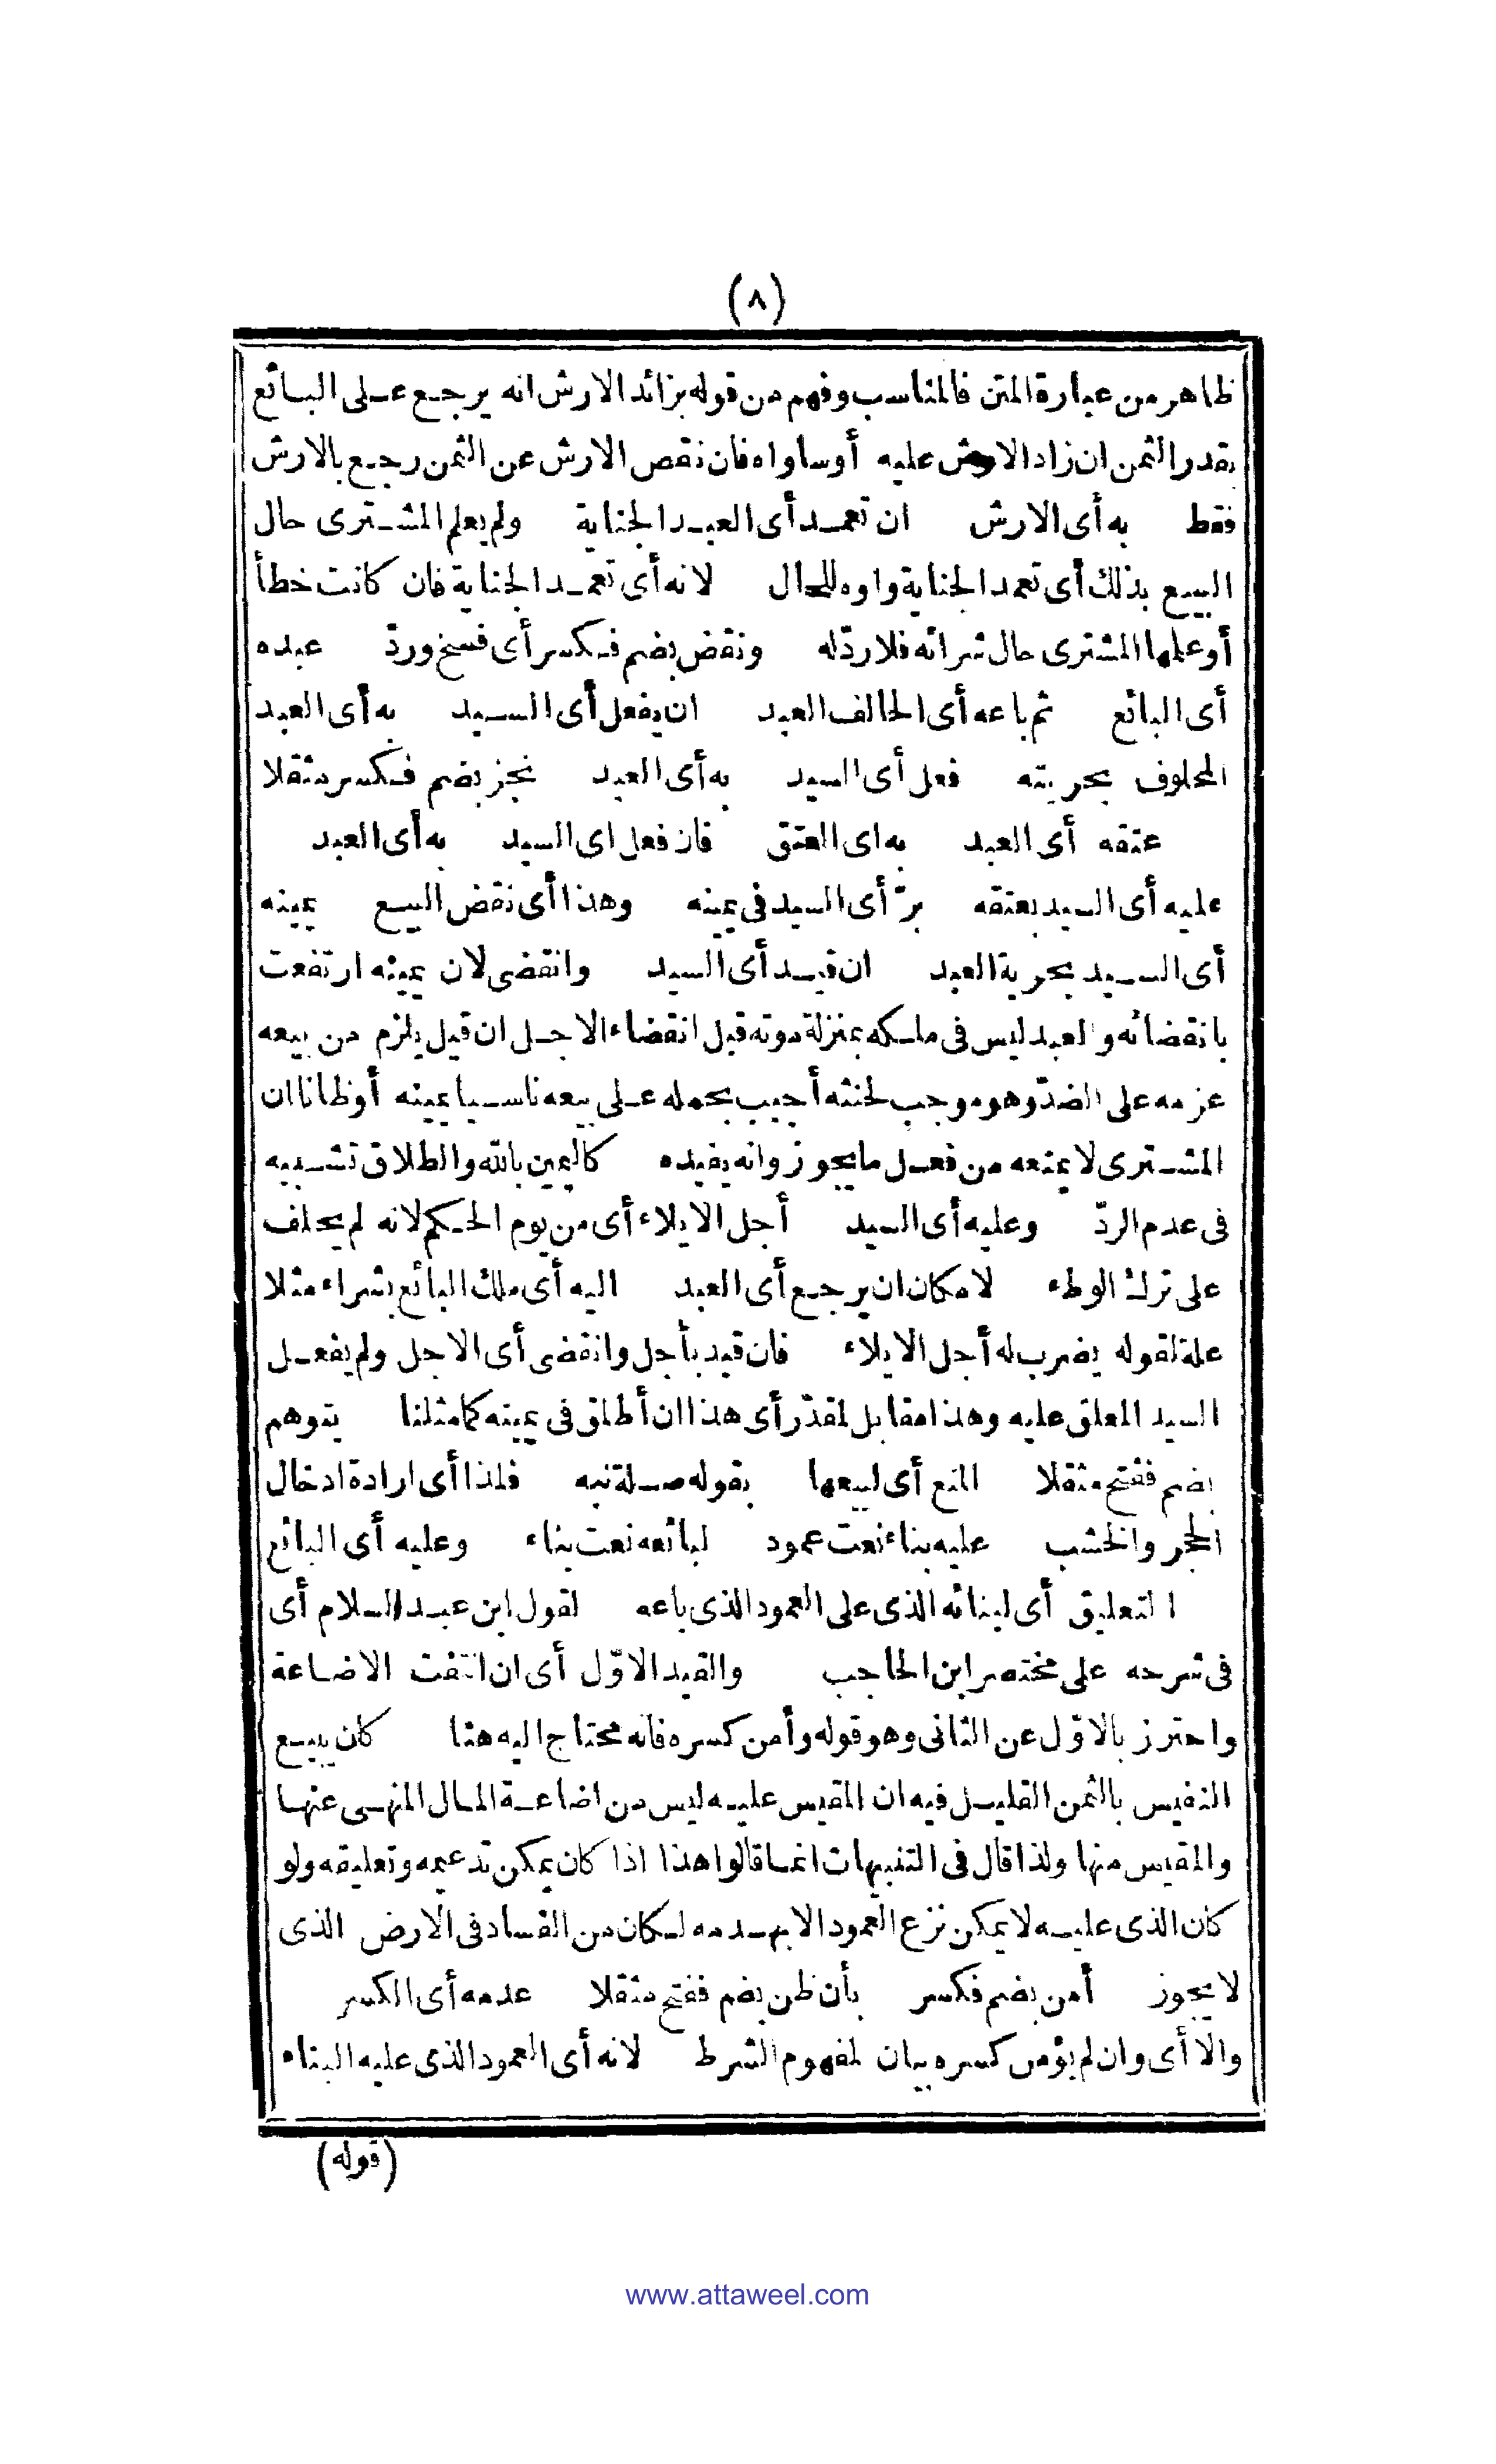 (٨)
ظاهر من عبارة المتن فالمناسب وفهم من قوله بزائد الارش انه يرجع على البائع
بقدر الثمن ان زاد الارش عليه أوساواه فان نقص الارش عن الثمن رجع بالارش
فقط به أى الارش ان تعمد أى العبد الجناية ولم يعلم المشترى حال
البيع بذلك أى تعمد الجناية واوه للحال لانه أى تعمد الجناية فان كانت خطأ
أوعلمها المشترى حال شرائه فلا ردّله ونقض بضم فكسر أى فسخ وردّ عبده
أى البائع ثم باعه أى الحالف العبد ان يفعل أى السيد به أى العبد
المحلوف بحريته فعل أى السيد به أى العبد نجز بضم فكسر مثقلا
عتقه أى العبد به اى العتق فان فعل اى السيد به أى العبد
عليه أى السيد بعتقه برّ أى السيد فى يمينه وهذا أى نقض البيع يمينه
أى السيد بحرية العبد ان قيد أى السيد وانقضى لان يمينه ارتفعت
بانقضائه والعبد ليس فى ملكه بمنزلة موته قبل انقضاء الاجل ان قيل يلزم من بيعه
عزمه على الضدّ وهو موجب لحنثه أجيب بحمله على بيعه ناسيا يمينه أوظانا ان
المشترى لا يمنعه من فعل ما يجوز وانه يفيده كاليمين بالله والطلاق تشبيه
فى عدم الردّ وعليه أى السيد أجل الايلاء أى من يوم الحكم لانه لم يحلف
على ترك الوطء لامكان ان يرجع أى العبد اليه أى ملك البائع بشراء مثلا
علة لقوله يضرب له أجل الايلاء فان قيد بأجل وانقضى أى الاجل ولم يفعل
السيد المعلق عليه وهذا مقابل لمقدّر أى هذا ان أطلق فى يمينه كمامثلنا يتوهم
بضم ففتح مثقلا المنع أى لبيعها بقوله صلة نبه فلذا أى ارادة ادخال
الحجر والخشب عليه بناء نعت عمود لبائعه نعت بناء وعليه أى البائع
التعليق أى لبنائه الذى على العمود الذى باعه لقول ابن عبد السلام أى
فى شرحه على مختصر ابن الحاجب والقيد الاوّل أى ان انتفت الاضاعة
واحترز بالاوّل عن الثانى وهو قوله وأمن كسره فانه محتاج اليه هنا كان يبيع
النفيس بالثمن القليل فيه ان المقيس عليه ليس من اضاعة المال المنهى عنها
والمقيس منها ولذا قال فى التنبيهات انما قالوا هذا اذا كان يمكن تدعيمه وتعليقه ولو
كان الذى عليه لا يمكن نزع العمود الا بهدمه لكان من الفساد فى الارض الذى
لا يجوز أمن بضم فكسر بأن ظن بضم ففتح مثقلا عدمه أى الكسر
والا أى وان لم يؤمن كسره بيان لمفهوم الشرط لانه أى العمود الذى عليه البناء
(قوله)
www.attaweel.com